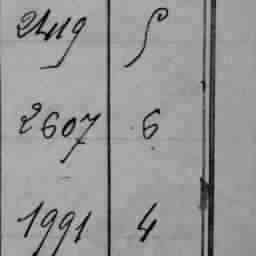 2419 5
2607 6
1991 4